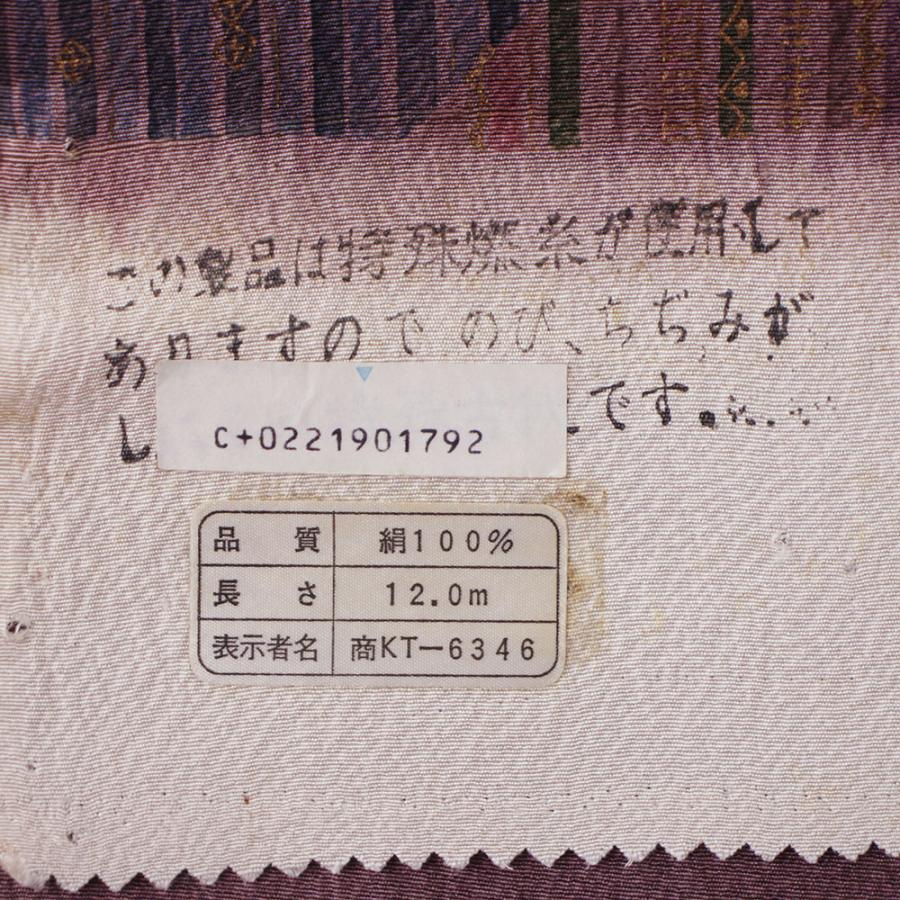 この製品は特殊撚糸が使用して
ありますので のび、ちぢみが
し
です。
C+0221901792
品 質 絹100%
長 さ 12.0m
表示者名 商KT-6346